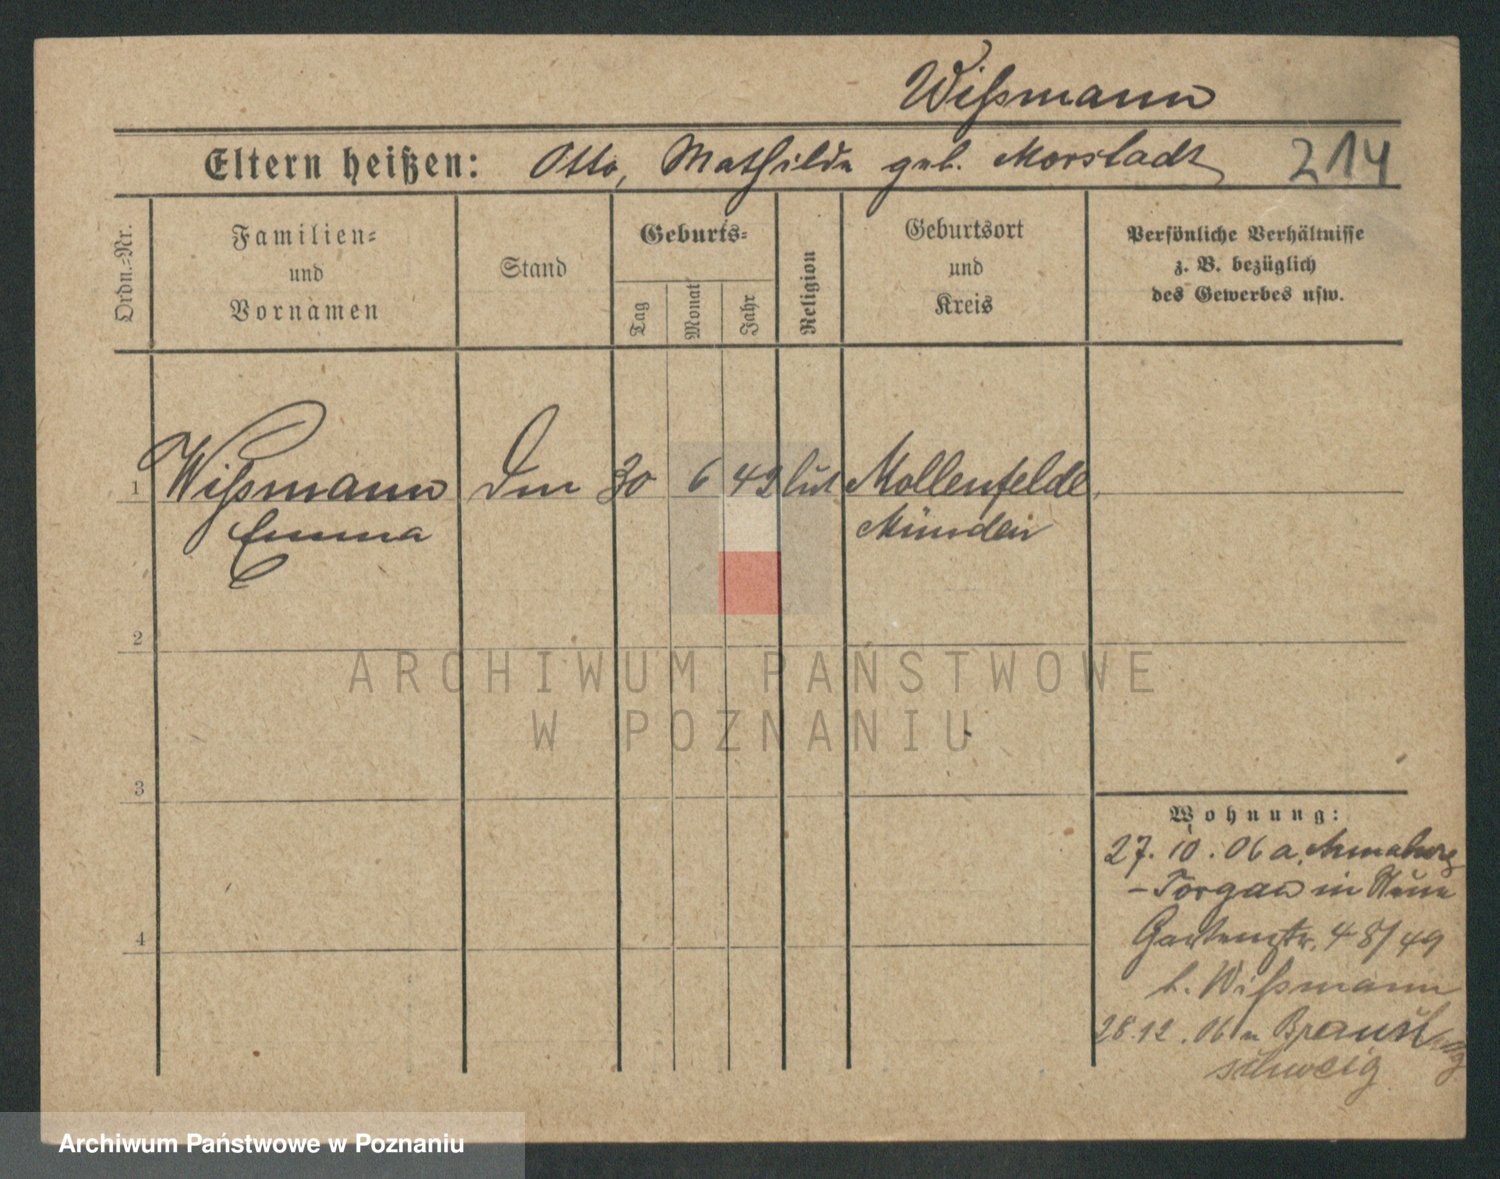 Wißmann
Eltern heißen: Otto, Mathilde geb. Morstadt 214
Ordn.-Nr.
Familien-
und
Vornamen
Stand
Geburts-
Tag
Monat
Jahr
Religion
Geburtsort
und
Kreis
Persönliche Verhältnisse
z. B. bezüglich
des Gewerbes usw.
1 Wißmann 30 6 42 lut Mollenfelde
Emma Münden
2
ARCHIWUM PAŃSTWOWE
W POZNANIU
3
Wohnung:
27. 10. 06 a. Annaburg
- Torgau in
4
Gartenstr. 48/49
b. Wißmann
28.12.06 n Braun
schweig
Archiwum Państwowe w Poznaniu